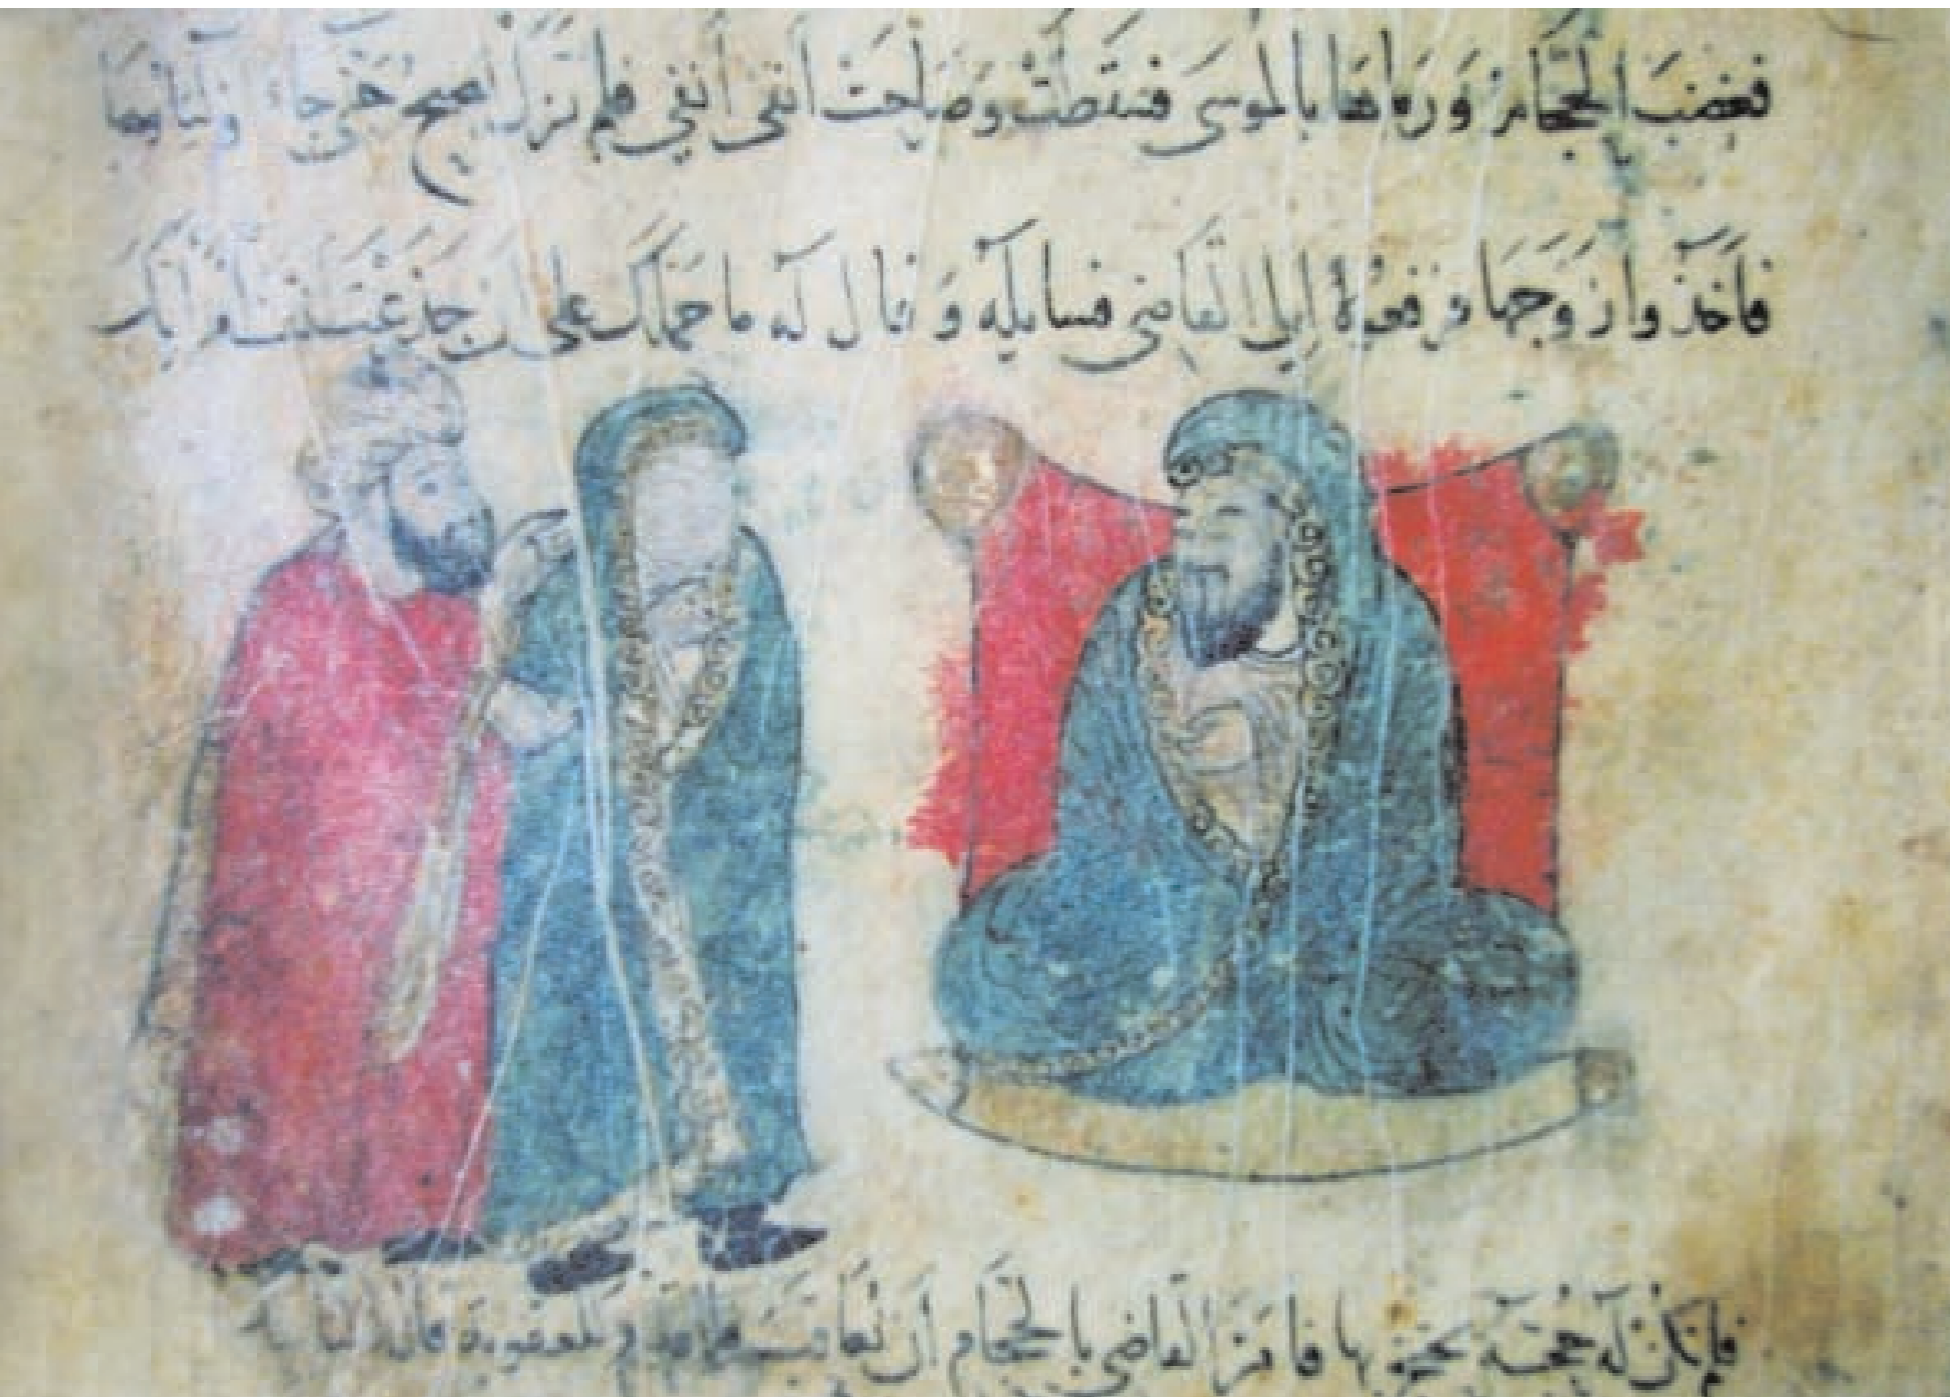 فَغَضِبَ الحَجَّامُ وَرَمَاهَا بالموسى فسقطت وصاحت انفي أنفي فلم تزل تصيح حتى جاء
فاخذوا زوجها فرفعوه إلى القاضي فسايله وقال له ما حملك على ان
فلم تكن له حجة يحتج بها فامر القاضي بالحجام ان يعاقب فلما قدم للعقوبة قال